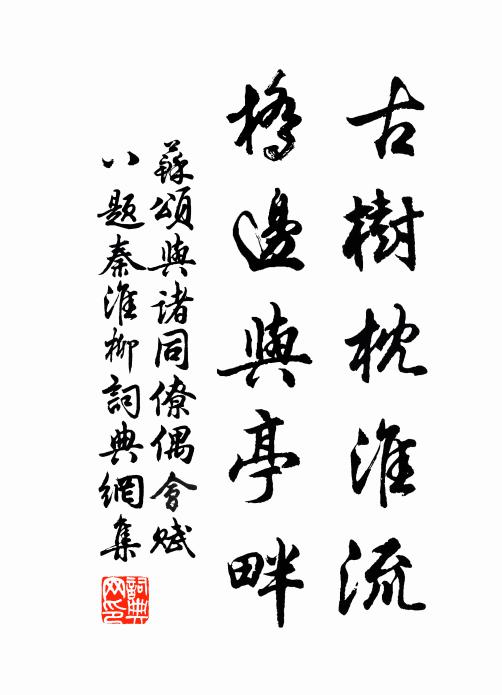 古樹枕淮流
橋邊與亭畔
蘇頌與诸同僚偶會赋
八题秦淮柳詞典網集
詞典网印